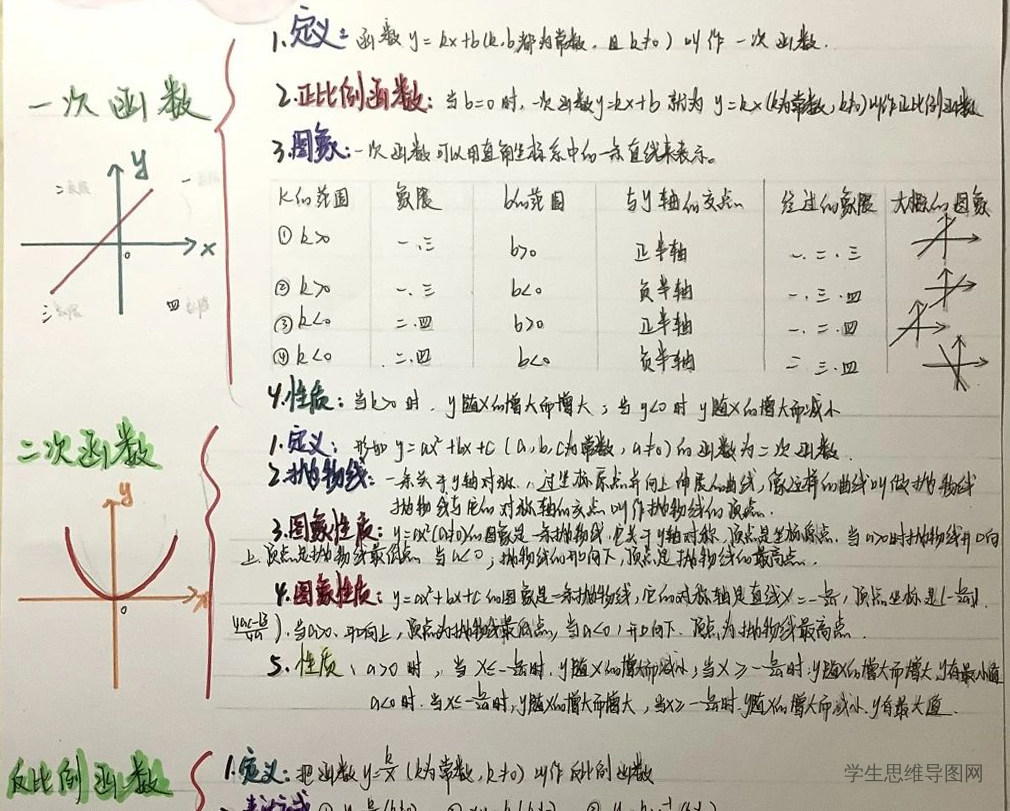 1.定义:函数y=kx+b(k,b都为常数,且k≠0)叫作一次函数.
一次函数
2.正比例函数:当b=0时,一次函数y=kx+b就为y=kx(k为常数,k≠0)叫作正比例函数
3.图象:一次函数可以用直角坐标系中的一条直线来表示。
y
二象限
一
x
o
三象限
四象限
k的范围 象限 b的范围 与y轴的交点 经过的象限 大概的图象
①k>0 一、三 b>0 正半轴 一、二、三
②k>0 一、三 b<0 负半轴 一、三、四
③k<0 二、四 b>0 正半轴 一、二、四
④k<0 二、四 b<0 负半轴 二 三、四
4.性质:当k>0时,y随x的增大而增大;当y<0时y随x的增大而减小
二次函数
1.定义:形如y=ax²+bx+c(a,b,c为常数,a≠0)的函数为二次函数.
2.抛物线:一条关于y轴对称,过坐标原点并向上伸展的曲线,像这样的曲线叫做抛物线
抛物线与它的对称轴的交点叫作抛物线的顶点.
y
x
o
3.图象性质:y=ax²(a≠0)的图象是一条抛物线,它关于y轴对称,顶点是坐标原点.当a>0时抛物线开口向
上,顶点是抛物线最低点 当a<0,抛物线的开口向下,顶点是抛物线的最高点.
4.图象性质:y=ax²+bx+c的图象是一条抛物线,它的对称轴是直线x=-b/2a,顶点坐标是(-b/2a,
4ac-b²/4a).当a>0,开口向上,顶点为抛物线最低点,当a<0,开口向下.顶点为抛物线最高点.
5.性质、a>0时,当x≤-b/2a时.y随x的增大而减小;当x≥-b/2a时.y随x的增大而增大,y有最小值
a<0时.当x≤-b/2a时,y随x的增大而增大,当x≥-b/2a时.y随x的增大而减小.y有最大值.
反比例函数
1.定义:把函数y=k/x(k为常数,k≠0)叫作反比例函数
学生思维导图网